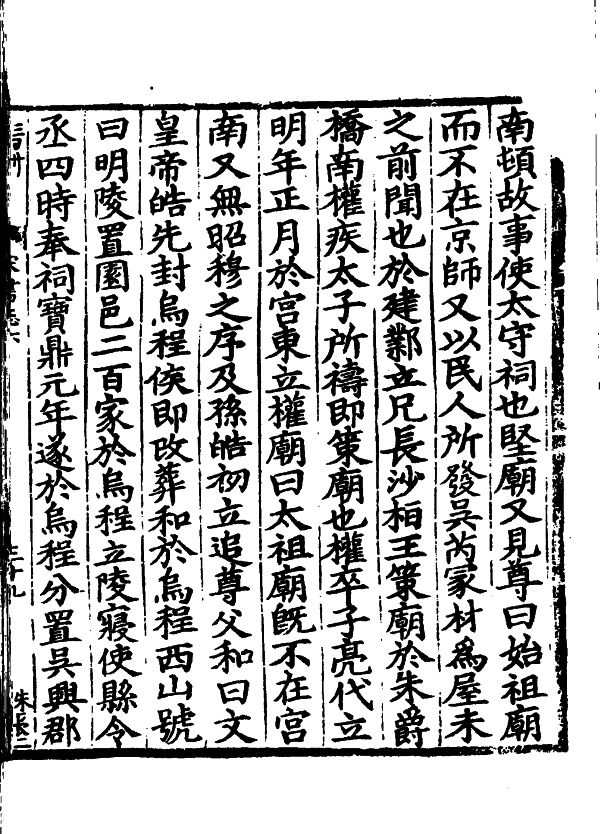 南頓故事使太守祠也堅廟又見尊曰始祖廟
而不在京師又以民人所發吳芮冢材為屋未
之前聞也於建鄴立兄長沙桓王策廟於朱爵
橋南權疾太子所禱即策廟也權卒子亮代立
明年正月於宮東立權廟曰太祖廟既不在宮
南又無昭穆之序及孫皓初立追尊父和曰文
皇帝皓先封烏程侯即改葬和於烏程西山號
曰明陵置園邑二百家於烏程立陵寢使縣令
丞四時奉祠寶鼎元年遂於烏程分置吳興郡